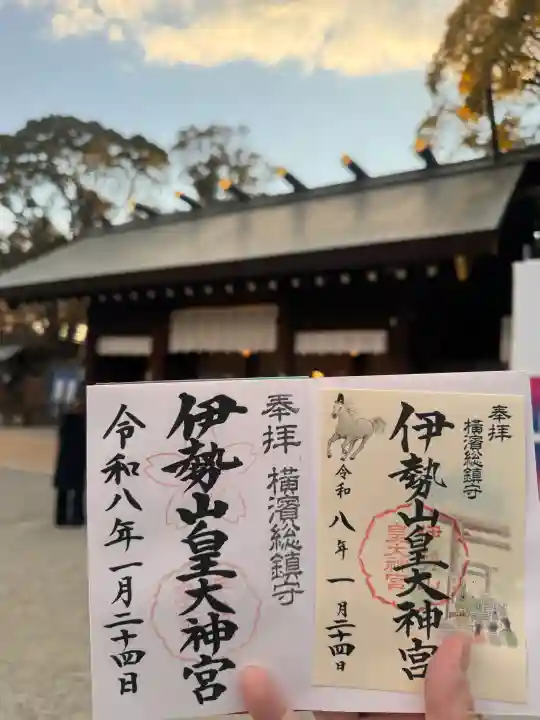 奉拝
横濱総鎮守
伊勢山皇大神宮
令和八年一月二十四日
奉拝
横濱総鎮守
伊勢山皇大神宮
令和八年一月二十四日